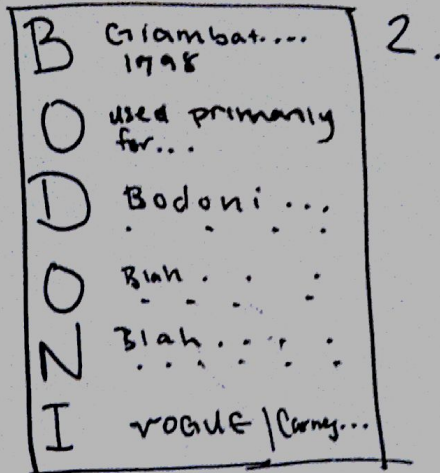 2.
B Giambat....
1798
O used primarily
for...
D Bodoni...
O Blah . . .
N Blah . . . . .
I VOGUE |